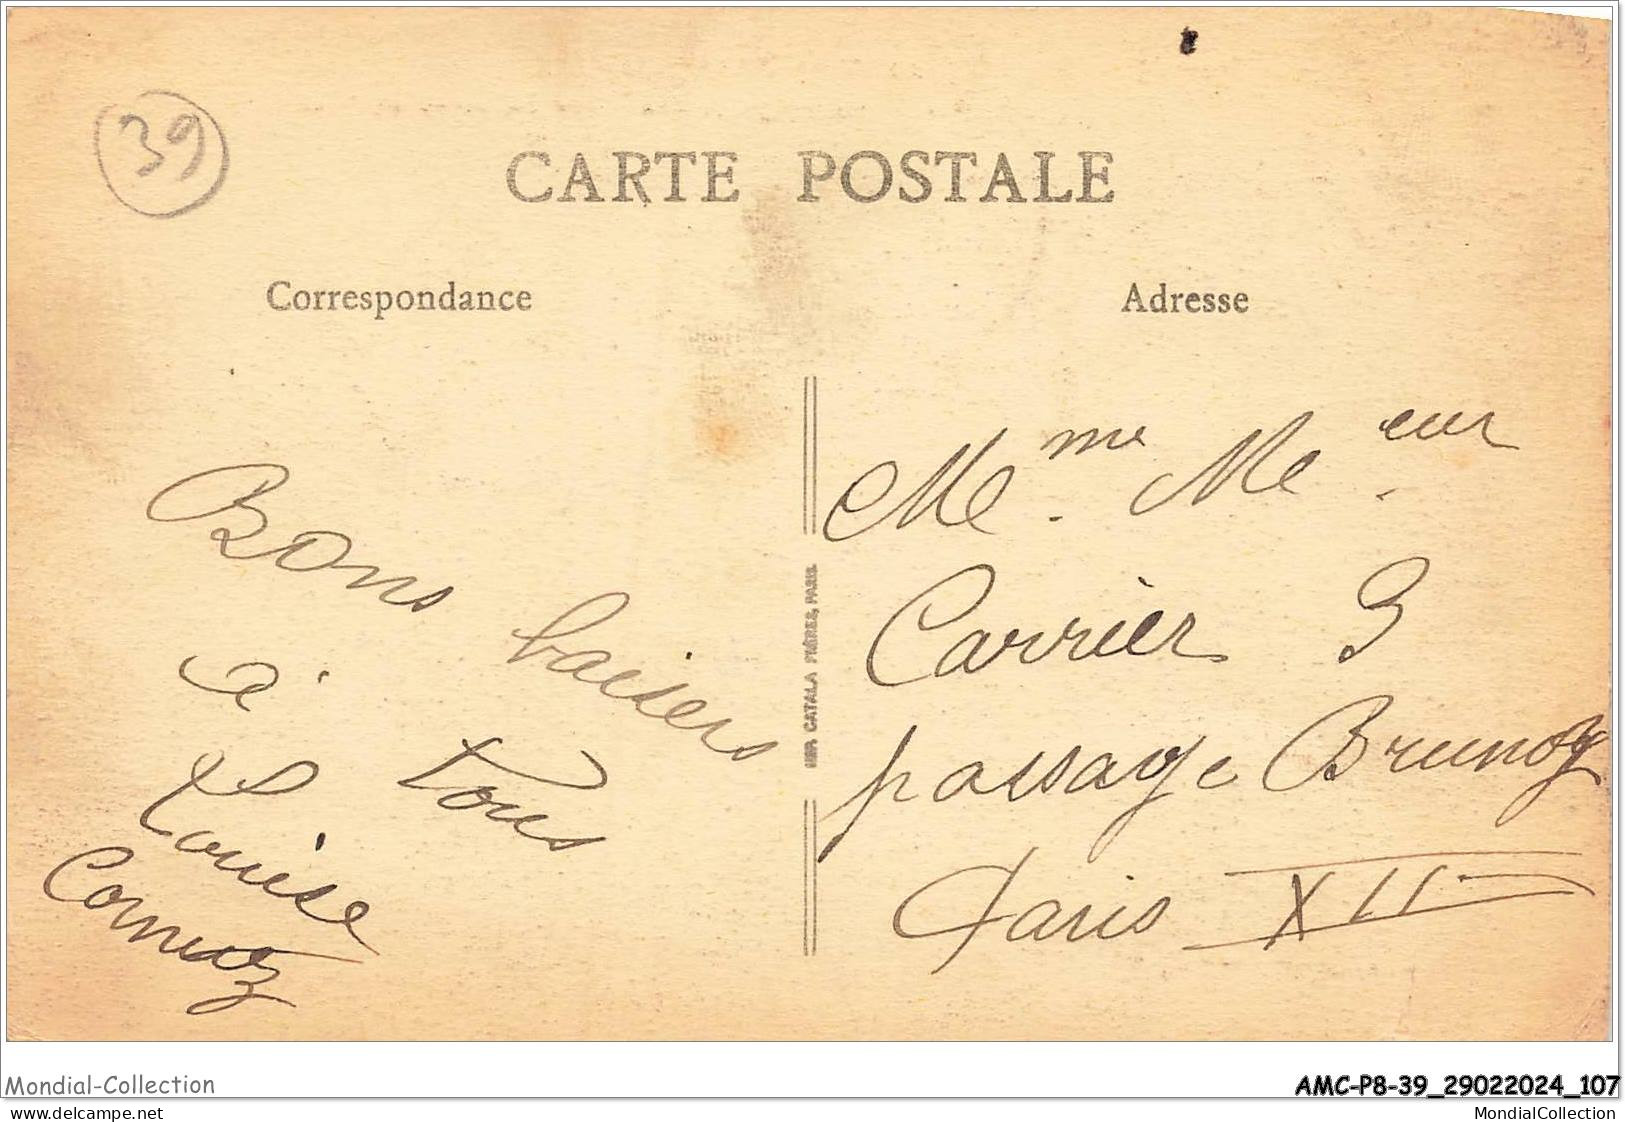 39
CARTE POSTALE
Correspondance
Adresse
Bons baisers
à tous
Louise
Me me. Me eur.
Carrier 9
passage Brunoy
Paris XII
CATALA FRÈRES, PARIS
Mondial-Collection
AMC-P8-39_29022024_107
www.delcampe.net
MondialCollection